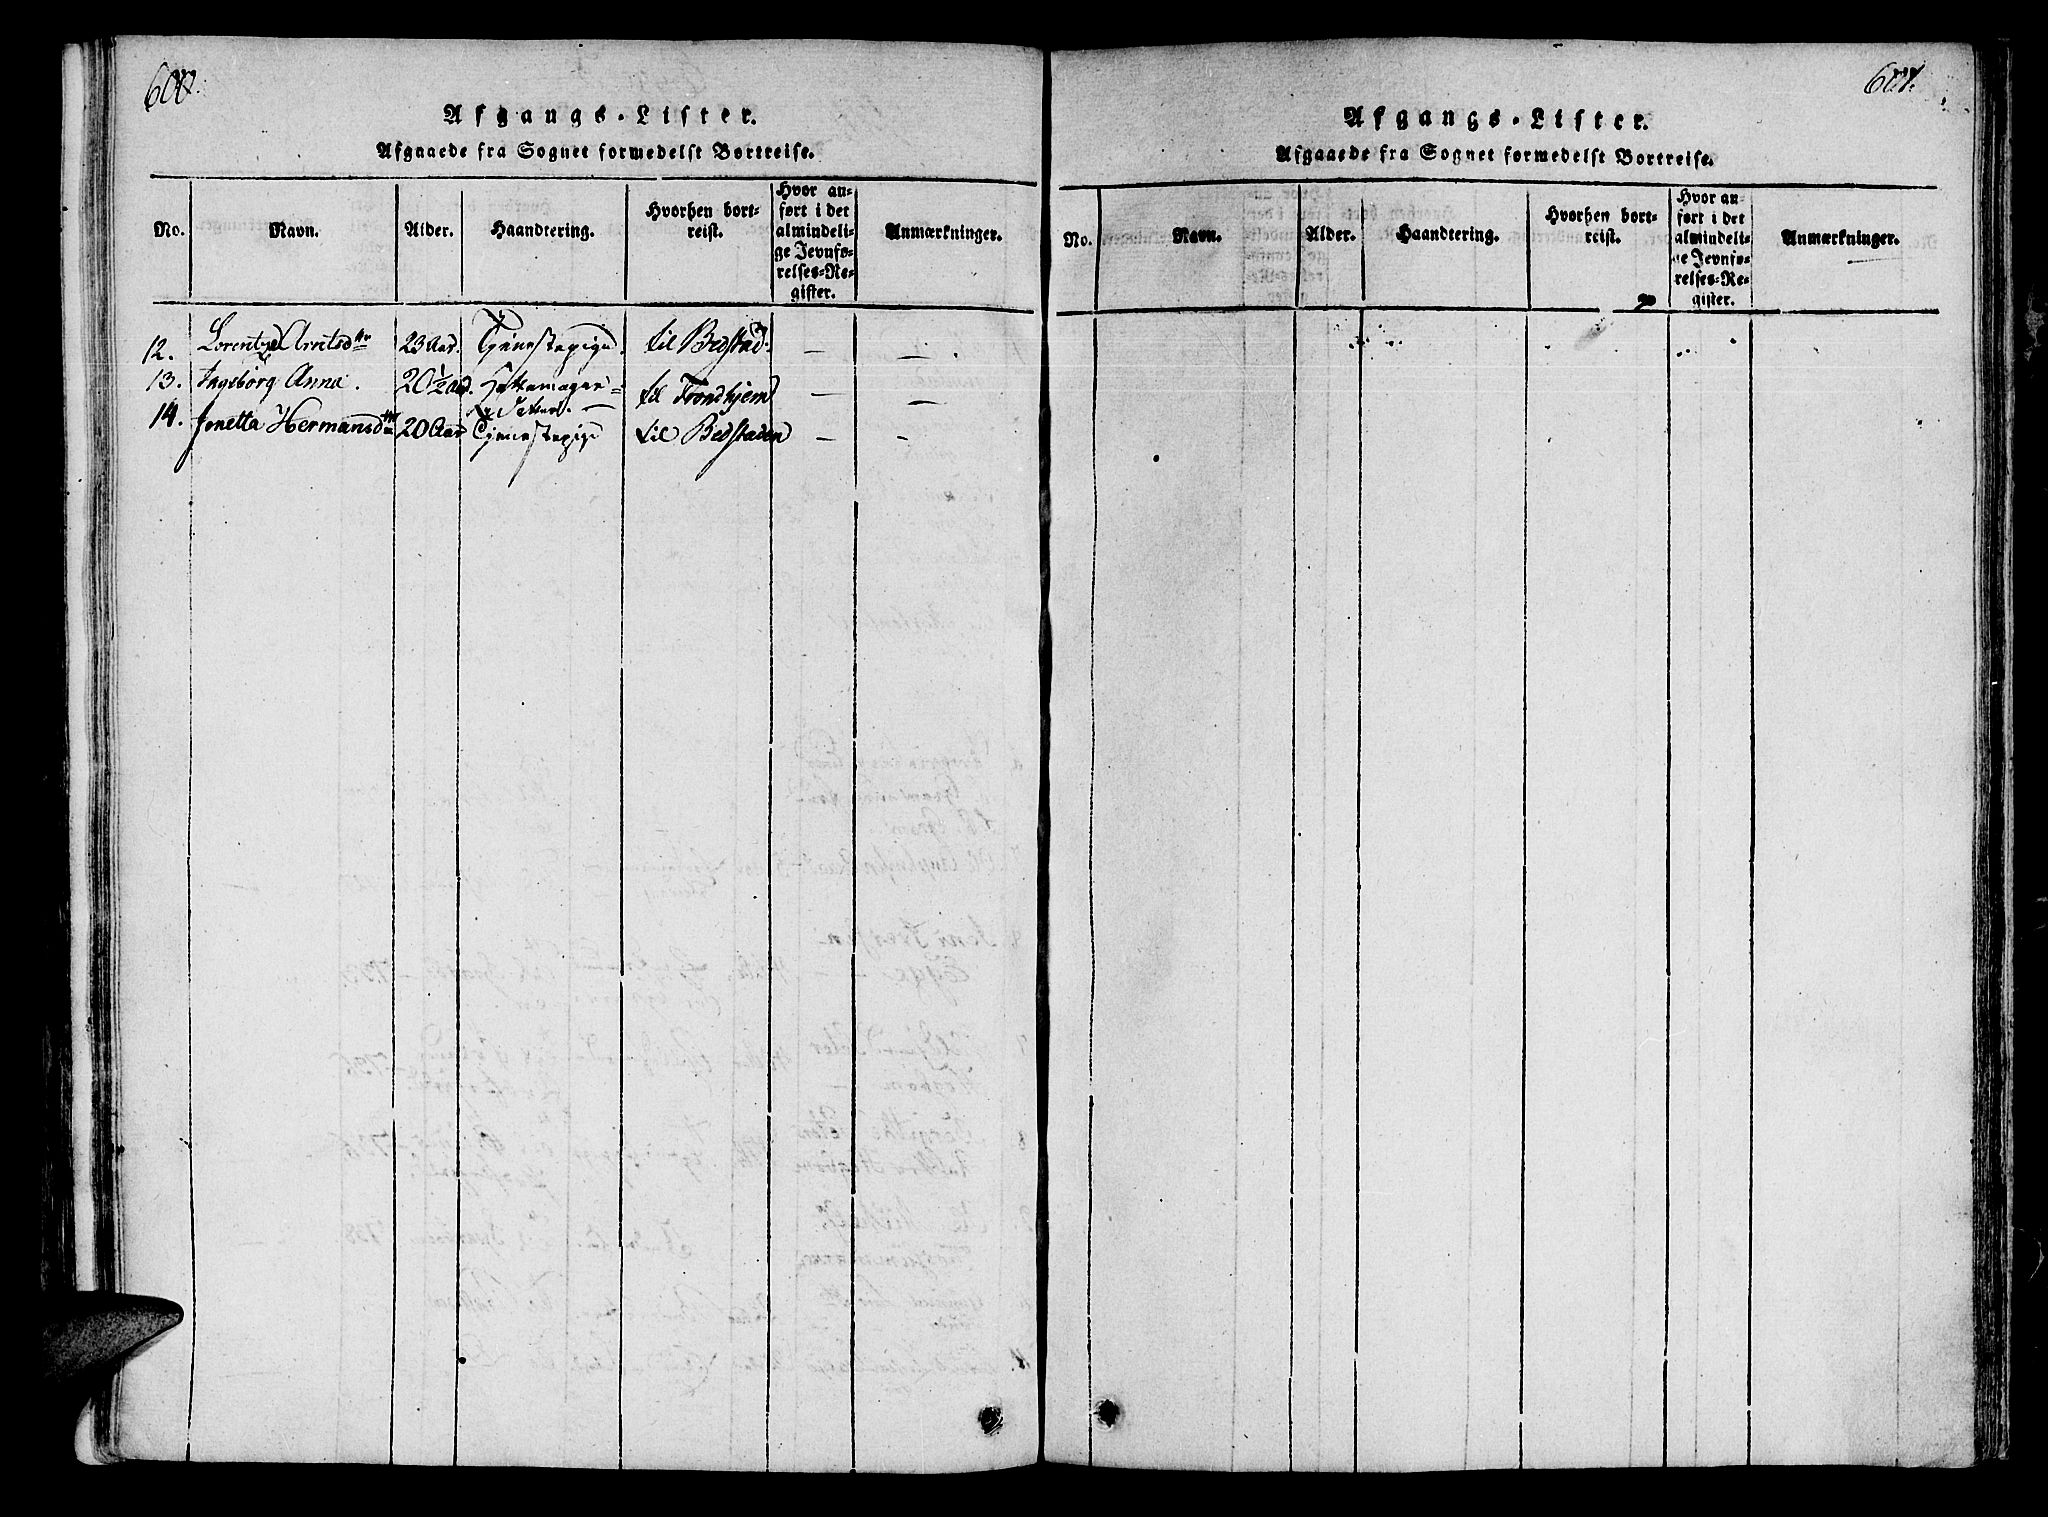 600.
Afgangs-Lister.
Afgnaede fra Sognet formedelst Bortreise.
No. Navn. Alder. Haandtering. Hvorhen bort-reist. Hvor an-ført i det almindelige Jevnfø-relses-Register. Anmærkninger.
12. Lorentze Arntsdtr 23 Aar. Tjenestepige. til Beistad. — —
13. Ingeborg Anna. 20½ Aar. Hattemager= til Trondhjem — —
Datter. —
14. Jonetta Hermansdtr 20 Aar Tjenestepige til Beistaden — —
601.
Afgangs-Lister.
Afgaaede fra Sognet formedelst Bortreise.
No. Navn. Alder. Haandtering. Hvorhen bort-reist. Hvor an-ført i det almindelige Jevnfø-relses-Register. Anmærkninger.